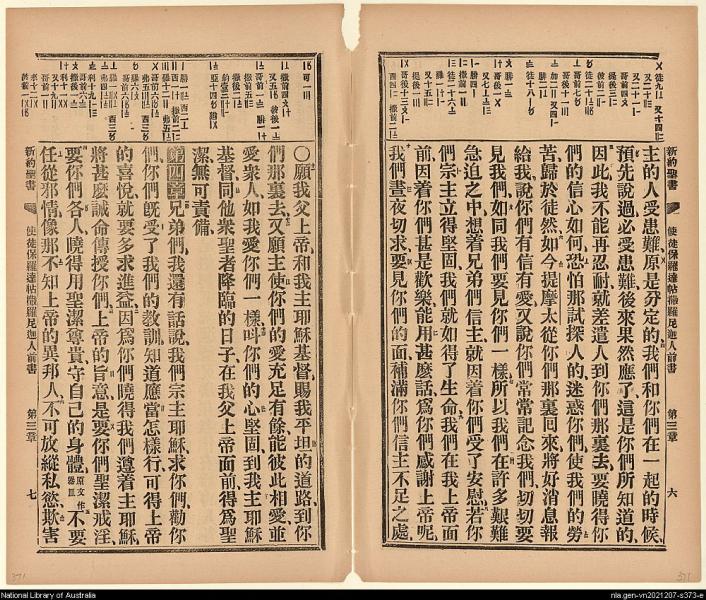 主的人受患難原是分定的我們和你們在一起的時候、
預先說過必受患難後來果然應了這是你們所知道的、
因此我不能再忍耐就差遣人到你們那裏去要曉得你
們的信心如何恐怕那試探人的迷惑你們使我們的勞
苦歸於徒然如今提摩太從你們那裏回來將好消息報
給我說你們有信有愛又說你們常常記念我們切切要
見我們如同我們要見你們一樣所以我們在許多艱難
急迫之中想着兄弟們信主就因着你們受了安慰若你
們宗主立得堅固我們就如得了生命我們在我上帝面
前因着你們甚是歡樂能用甚麼話爲你們感謝上帝呢
我們晝夜切求要見你們的面補滿你們信主不足之處、
新約聖書 使徒保羅達帖撒羅尼迦人前書 第三章 六
〇願我父上帝和我主耶穌基督賜我平坦的道路到你
們那裏去又願主使你們的愛充足有餘能彼此相愛並
愛衆人如我愛你們一樣叫你們的心堅固到我主耶穌
基督同他衆聖者降臨的日子在我父上帝面前得爲聖
潔無可責備
第四章兄弟們我還有話說我們宗主耶穌求你們勸你
們你們既受了我們的教訓知道應當怎樣行可得上帝
的喜悅就要多求進益因爲你們曉得我們遵着主耶穌
將甚麼誡命傳授你們上帝的旨意是要你們聖潔戒淫
要你們各人曉得用聖潔尊貴守自己的身體原文作器皿不要
任從邪情像那不知上帝的異邦人不可放縱私慾欺害
新約聖書 使徒保羅達帖撒羅尼迦人前書 第三章 七
National Library of Australia
nla.gen-vn2021207-s373-e